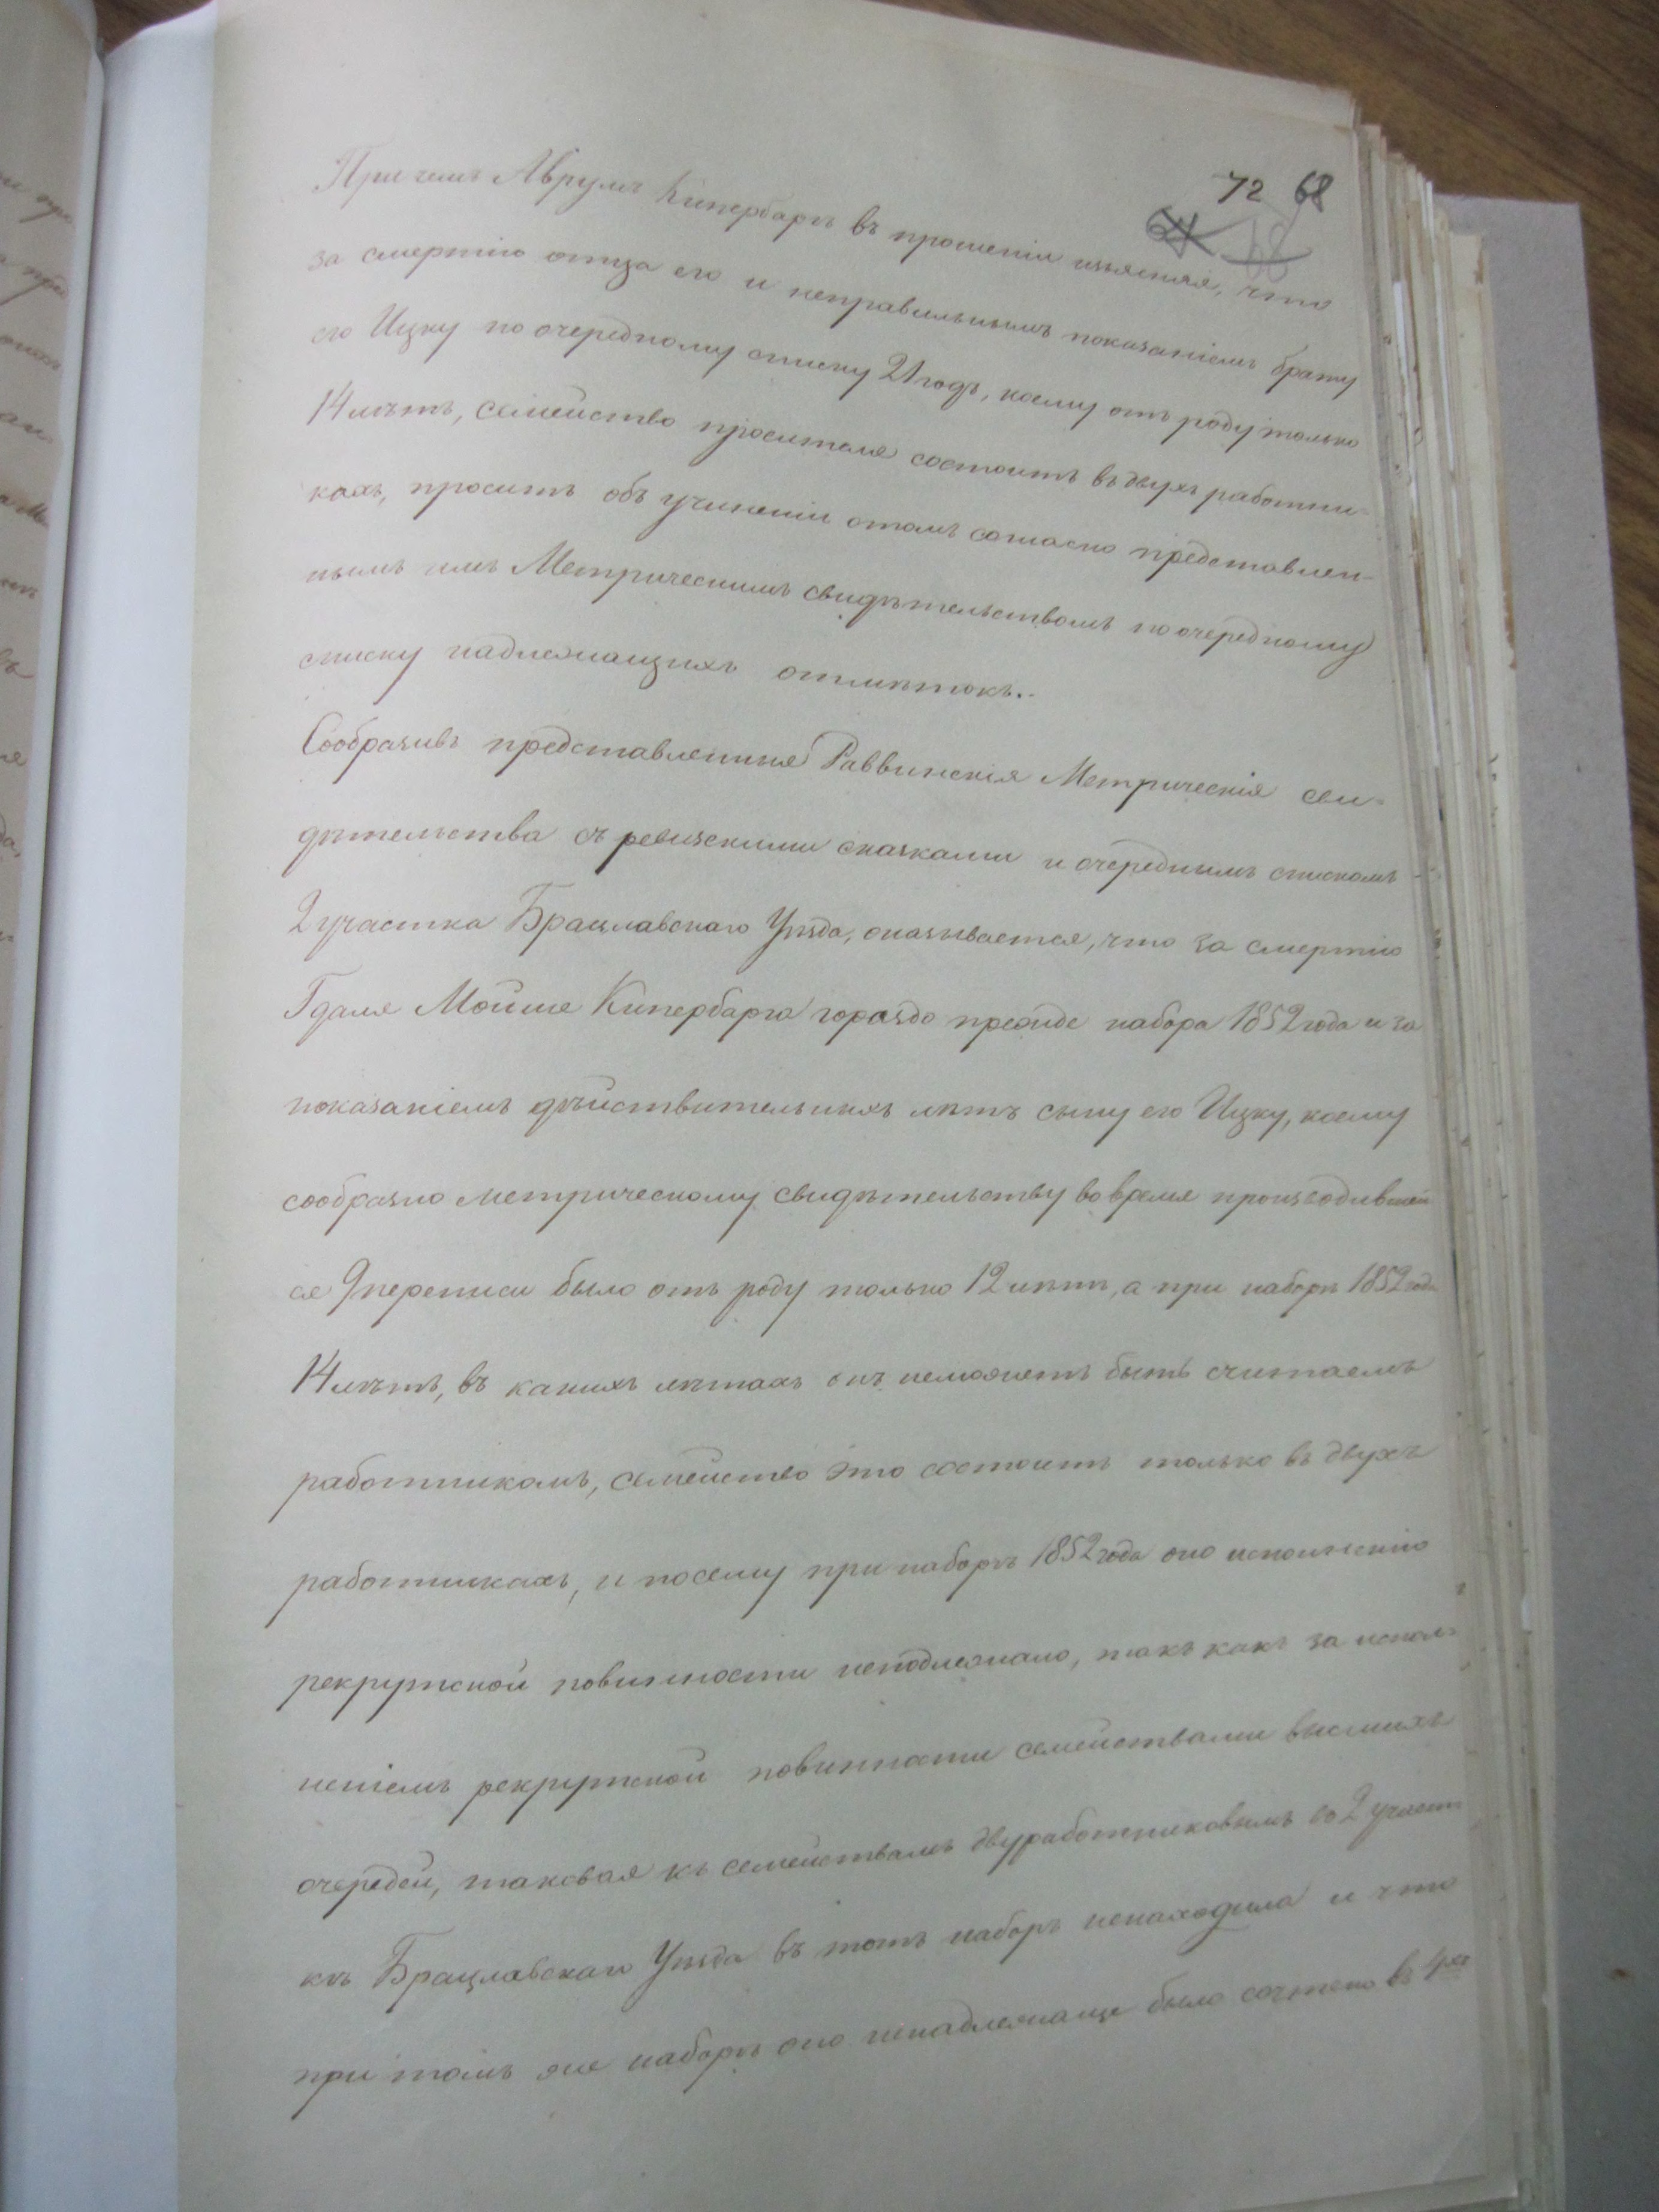 72 68
64 68
При чемъ Аврумъ Кипербаргъ въ прошеніи изъясняя, что
за смертію отца его и неправильнымъ показаніемъ брату
его Ицку по очередному списку 21 годъ, коему отъ роду только
14 лѣтъ, семейство просителя состоитъ въ двухъ работни-
кахъ, проситъ объ учиненіи о томъ согласно представлен-
нымъ имъ Метрическимъ свидѣтельствомъ по очередному
списку надлежащихъ отмѣтокъ..
Сообразивъ представленныя Раввинскія Метрическія сви-
дѣтельства съ ревизскими сказками и очереднымъ спискомъ
2 участка Брацлавскаго Уѣзда, оказывается, что за смертію
Гдаля Мойше Кипербарга гораздо прежде набора 1852 года и за
показаніемъ дѣйствительныхъ лѣтъ сыну его Ицку, коему
сообразно метрическому свидѣтельству во время производившей
ся 9 переписи было отъ роду только 12 лѣтъ, а при наборѣ 1852 года
14 лѣтъ, въ какихъ лѣтахъ онъ неможетъ быть считаемъ
работникомъ, семейство это состоитъ только въ двухъ
работникахъ, и посему при наборѣ 1852 года оно исполненію
рекрутской повинности неподлежало, такъ какъ за испол-
неніемъ рекрутской повинности семействами высшихъ
очередей, таковая къ семействамъ двуработниковымъ во 2 участ
кѣ Брацлавскаго Уѣзда въ тотъ наборъ ненаходила и что
при томъ же наборѣ оно ненадлежаще было сочтено въ 4хъ